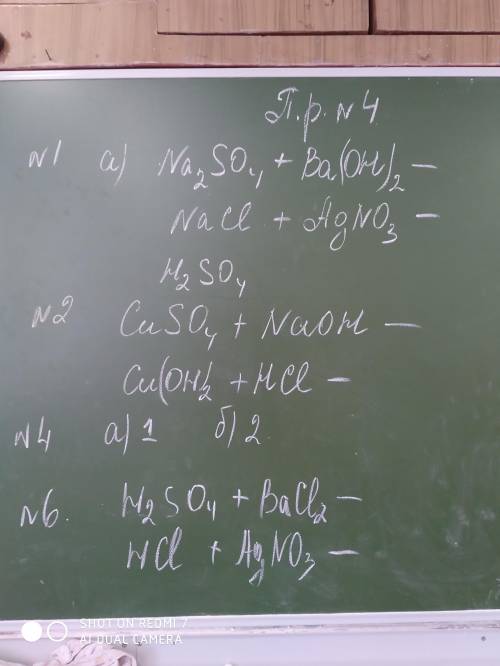 П.р. N 4
N1 a) Na₂SO₄ + Ba(OH)₂ —
NaCl + AgNO₃ —
H₂SO₄
N2 CuSO₄ + NaOH —
Cu(OH)₂ + HCl —
N4 а) 1 б) 2
N6. H₂SO₄ + BaCl₂ —
HCl + AgNO₃ —
SHOT ON REDMI 7
AI DUAL CAMERA